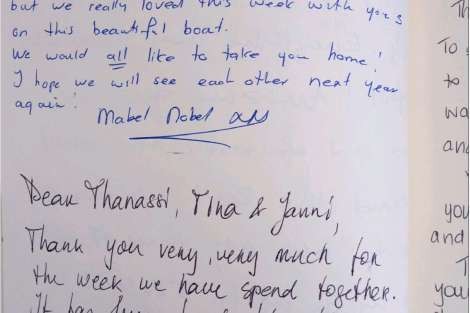 but we really loved this week with you's
on this beautiful boat.
We would all like to take you home!
I hope we will see each other next year
again!
Mabel Nobel
Dear Thanassi, Tina & Janni,
Thank you very, very much for
the week we have spend together.
It has
Th
To
to
wa
an
you
and
T
you